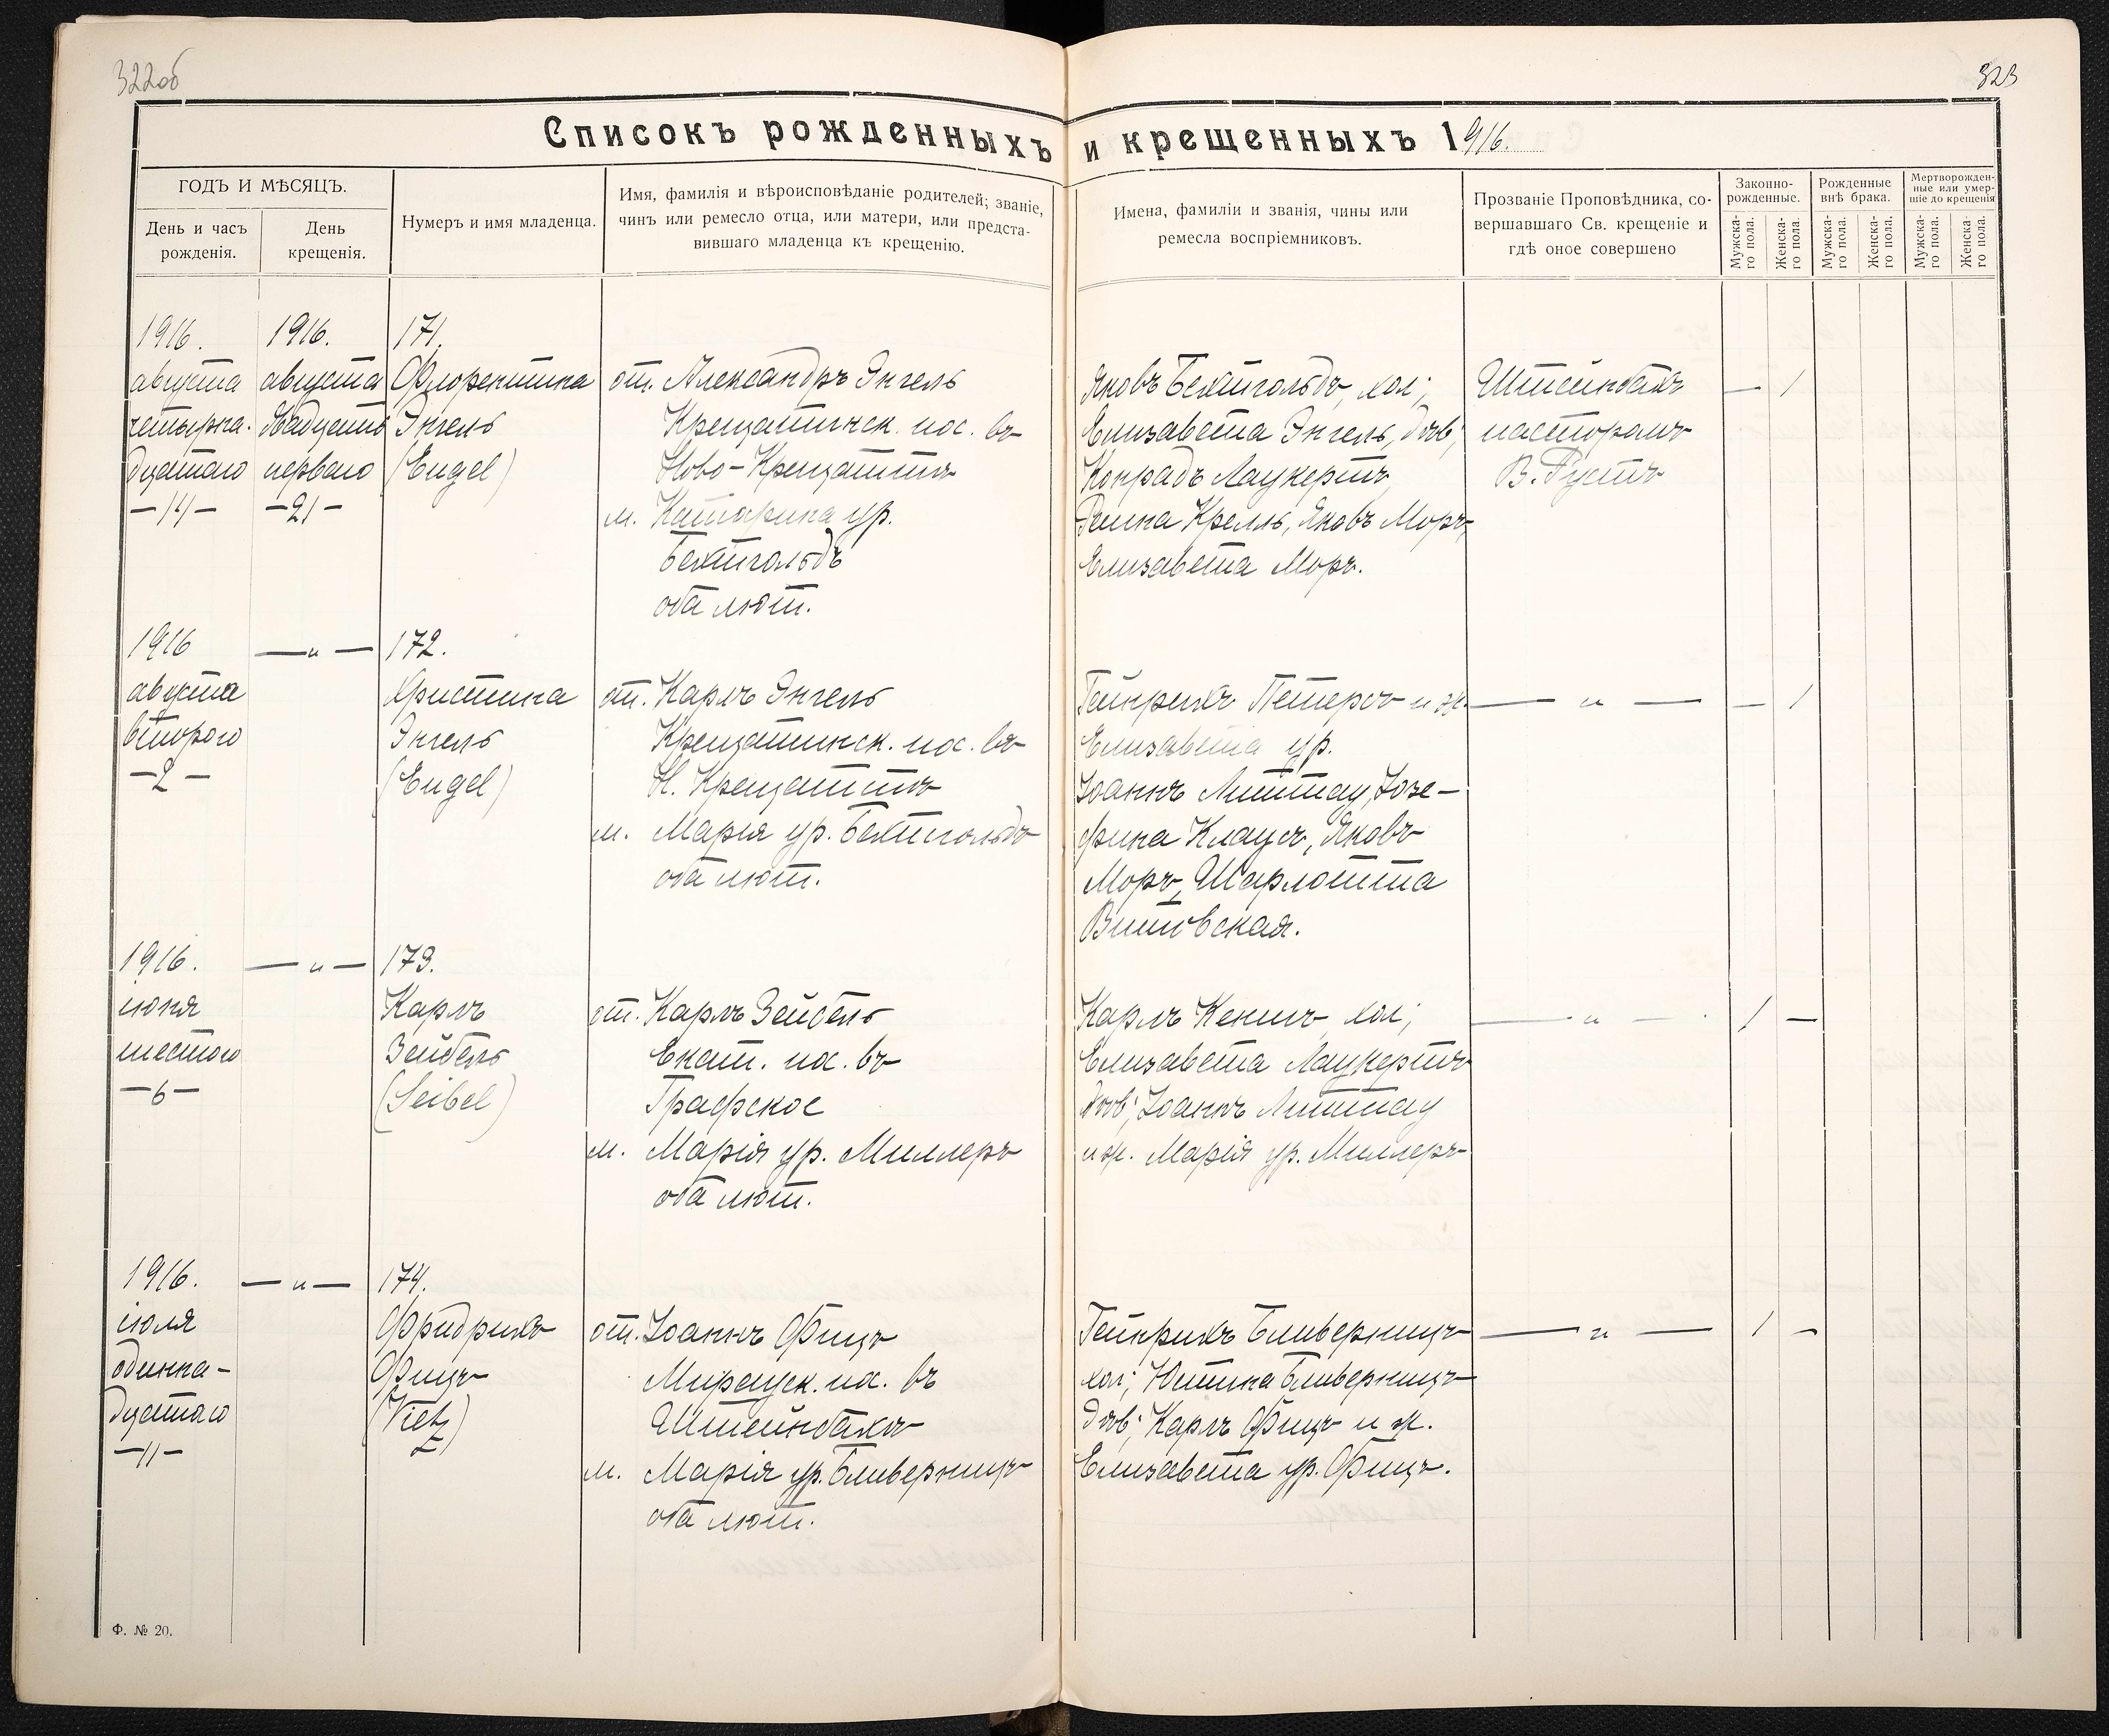 322об
323
Списокъ рожденныхъ и крещенныхъ 1916.
ГОДЪ И МѢСЯЦЪ.
День и часъ рожденія.
День крещенія.
Нумеръ и имя младенца.
Имя, фамилія и вѣроисповѣданіе родителей; званіе,
чинъ или ремесло отца, или матери, или предста-
вившаго младенца къ крещенію.
Имена, фамиліи и званія, чины или
ремесла воспріемниковъ.
Прозваніе Проповѣдника, со-
вершавшаго Св. крещеніе и
гдѣ оное совершено
Законно-
рожденные.
Рожденные
внѣ брака.
Мертворожден-
ные или умер-
шіе до крещенія
Мужска-
го пола.
Женска-
го пола.
Мужска-
го пола.
Женска-
го пола.
Мужска-
го пола.
Женска-
го пола.
1916.
августа
четырна-
дцатаго
—14—
1916.
августа
двадцать
перваго
—21—
171.
Флорентина
Энгель
(Engel)
от. Александръ Энгель
Крещатинск. пос. въ
Ново-Крещатикъ
м. Катарина ур.
Бехтгольдъ
оба лют.
Яковъ Бехтгольдъ, хол;
Елизавета Энгель, дѣв;
Конрадъ Лаукертъ,
Крелль, Яковъ Моръ,
Елизавета Моръ.
Штейнбахъ
пасторомъ
В. Густъ
— 1
1916
августа
второго
—2—
— „ —
172.
Христина
Энгель
(Engel)
от. Карлъ Энгель
Крещатинск. пос. въ
Н. Крещатикъ
м. Марія ур. Бехтгольдъ
оба лют.
Гейнрихъ Петерсъ и ж.
Елизавета ур.
Іоаннъ Литтау, Іозе-
фина Клаусъ, Яковъ
Моръ, Шарлотта
Витовская.
— „ —
— 1
1916.
іюня
шестого
—6—
— „ —
173.
Карлъ
Зейбель
(Seibel)
от. Карлъ Зейбель
Екат. пос. въ
Графское
м. Марія ур. Миллеръ
оба лют.
Карлъ Кенигъ хол;
Елизавета Лаукертъ
дѣв; Іоаннъ Литтау
и ж. Марія ур. Миллеръ
— „ —
1 —
1916.
іюля
одинна-
дцатаго
—11—
— „ —
174.
Фридрихъ
Фицъ
(Vietz)
от. Іоаннъ Фицъ
пос. въ
Штейнбахъ
м. Марія ур. Бливерницъ
оба лют.
Гейнрихъ Бливерницъ
хол; Юстина Бливерницъ
дѣв; Карлъ Фицъ и ж.
Елизавета ур. Фицъ.
— „ —
1 —
Ф. № 20.